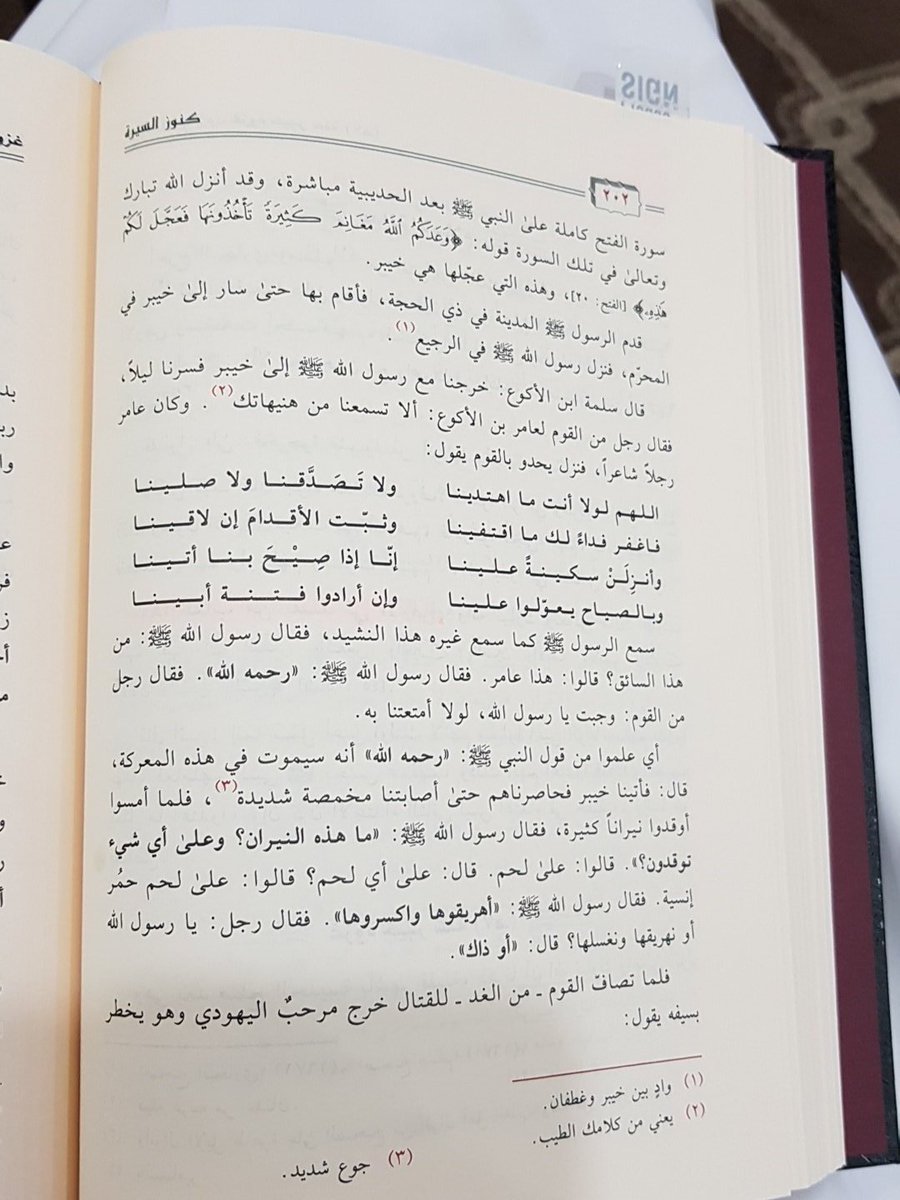 كنوز السيرة
٢٠٢
سورة الفتح كاملة علىٰ النبي ﷺ بعد الحديبية مباشرة، وقد أنزل الله تبارك
وتعالىٰ في تلك السورة قوله: ﴿وَعَدَكُمُ ٱللَّهُ مَغَانِمَ كَثِيرَةً تَأْخُذُونَهَا فَعَجَّلَ لَكُمْ
هَٰذِهِۦ﴾ [الفتح: ٢٠]، وهذه التي عجّلها هي خيبر.
قدم الرسول ﷺ المدينة في ذي الحجة، فأقام بها حتىٰ سار إلىٰ خيبر في
المحرّم، فنزل رسول الله ﷺ في الرجيع (١).
قال سلمة ابن الأكوع: خرجنا مع رسول الله ﷺ إلىٰ خيبر فسرنا ليلاً،
فقال رجل من القوم لعامر بن الأكوع: ألا تسمعنا من هنيهاتك (٢). وكان عامر
رجلاً شاعراً، فنزل يحدو بالقوم يقول:
اللهم لولا أنت ما اهتدينا ولا تَصَدَّقنا ولا صلينا
فاغفر فداءً لك ما اقتفينا وثبّت الأقدامَ إن لاقينا
وأنزِلَنْ سكينةً علينا إنّا إذا صِيْحَ بنا أتينا
وبالصباح يعوّلوا علينا وإن أرادوا فتنة أبينا
سمع الرسول ﷺ كما سمع غيره هذا النشيد، فقال رسول الله ﷺ: من
هذا السائق؟ قالوا: هذا عامر. فقال رسول الله ﷺ: «رحمه الله». فقال رجل
من القوم: وجبت يا رسول الله، لولا أمتعتنا به.
أي علموا من قول النبي ﷺ: «رحمه الله» أنه سيموت في هذه المعركة،
قال: فأتينا خيبر فحاصرناهم حتىٰ أصابتنا مخمصة شديدة (٣)، فلما أمسوا
أوقدوا نيراناً كثيرة، فقال رسول الله ﷺ: «ما هذه النيران؟ وعلىٰ أي شيء
توقدون؟». قالوا: علىٰ لحم. قال: علىٰ أي لحم؟ قالوا: علىٰ لحم حمُر
إنسية. فقال رسول الله ﷺ: «أهريقوها واكسروها». فقال رجل: يا رسول الله
أو نهريقها ونغسلها؟ قال: «أو ذاك».
فلما تصافّ القوم ـ من الغد ـ للقتال خرج مرحبٌ اليهودي وهو يخطر
بسيفه يقول:
(١) وادٍ بين خيبر وغطفان.
(٢) يعني من كلامك الطيب.
(٣) جوع شديد.